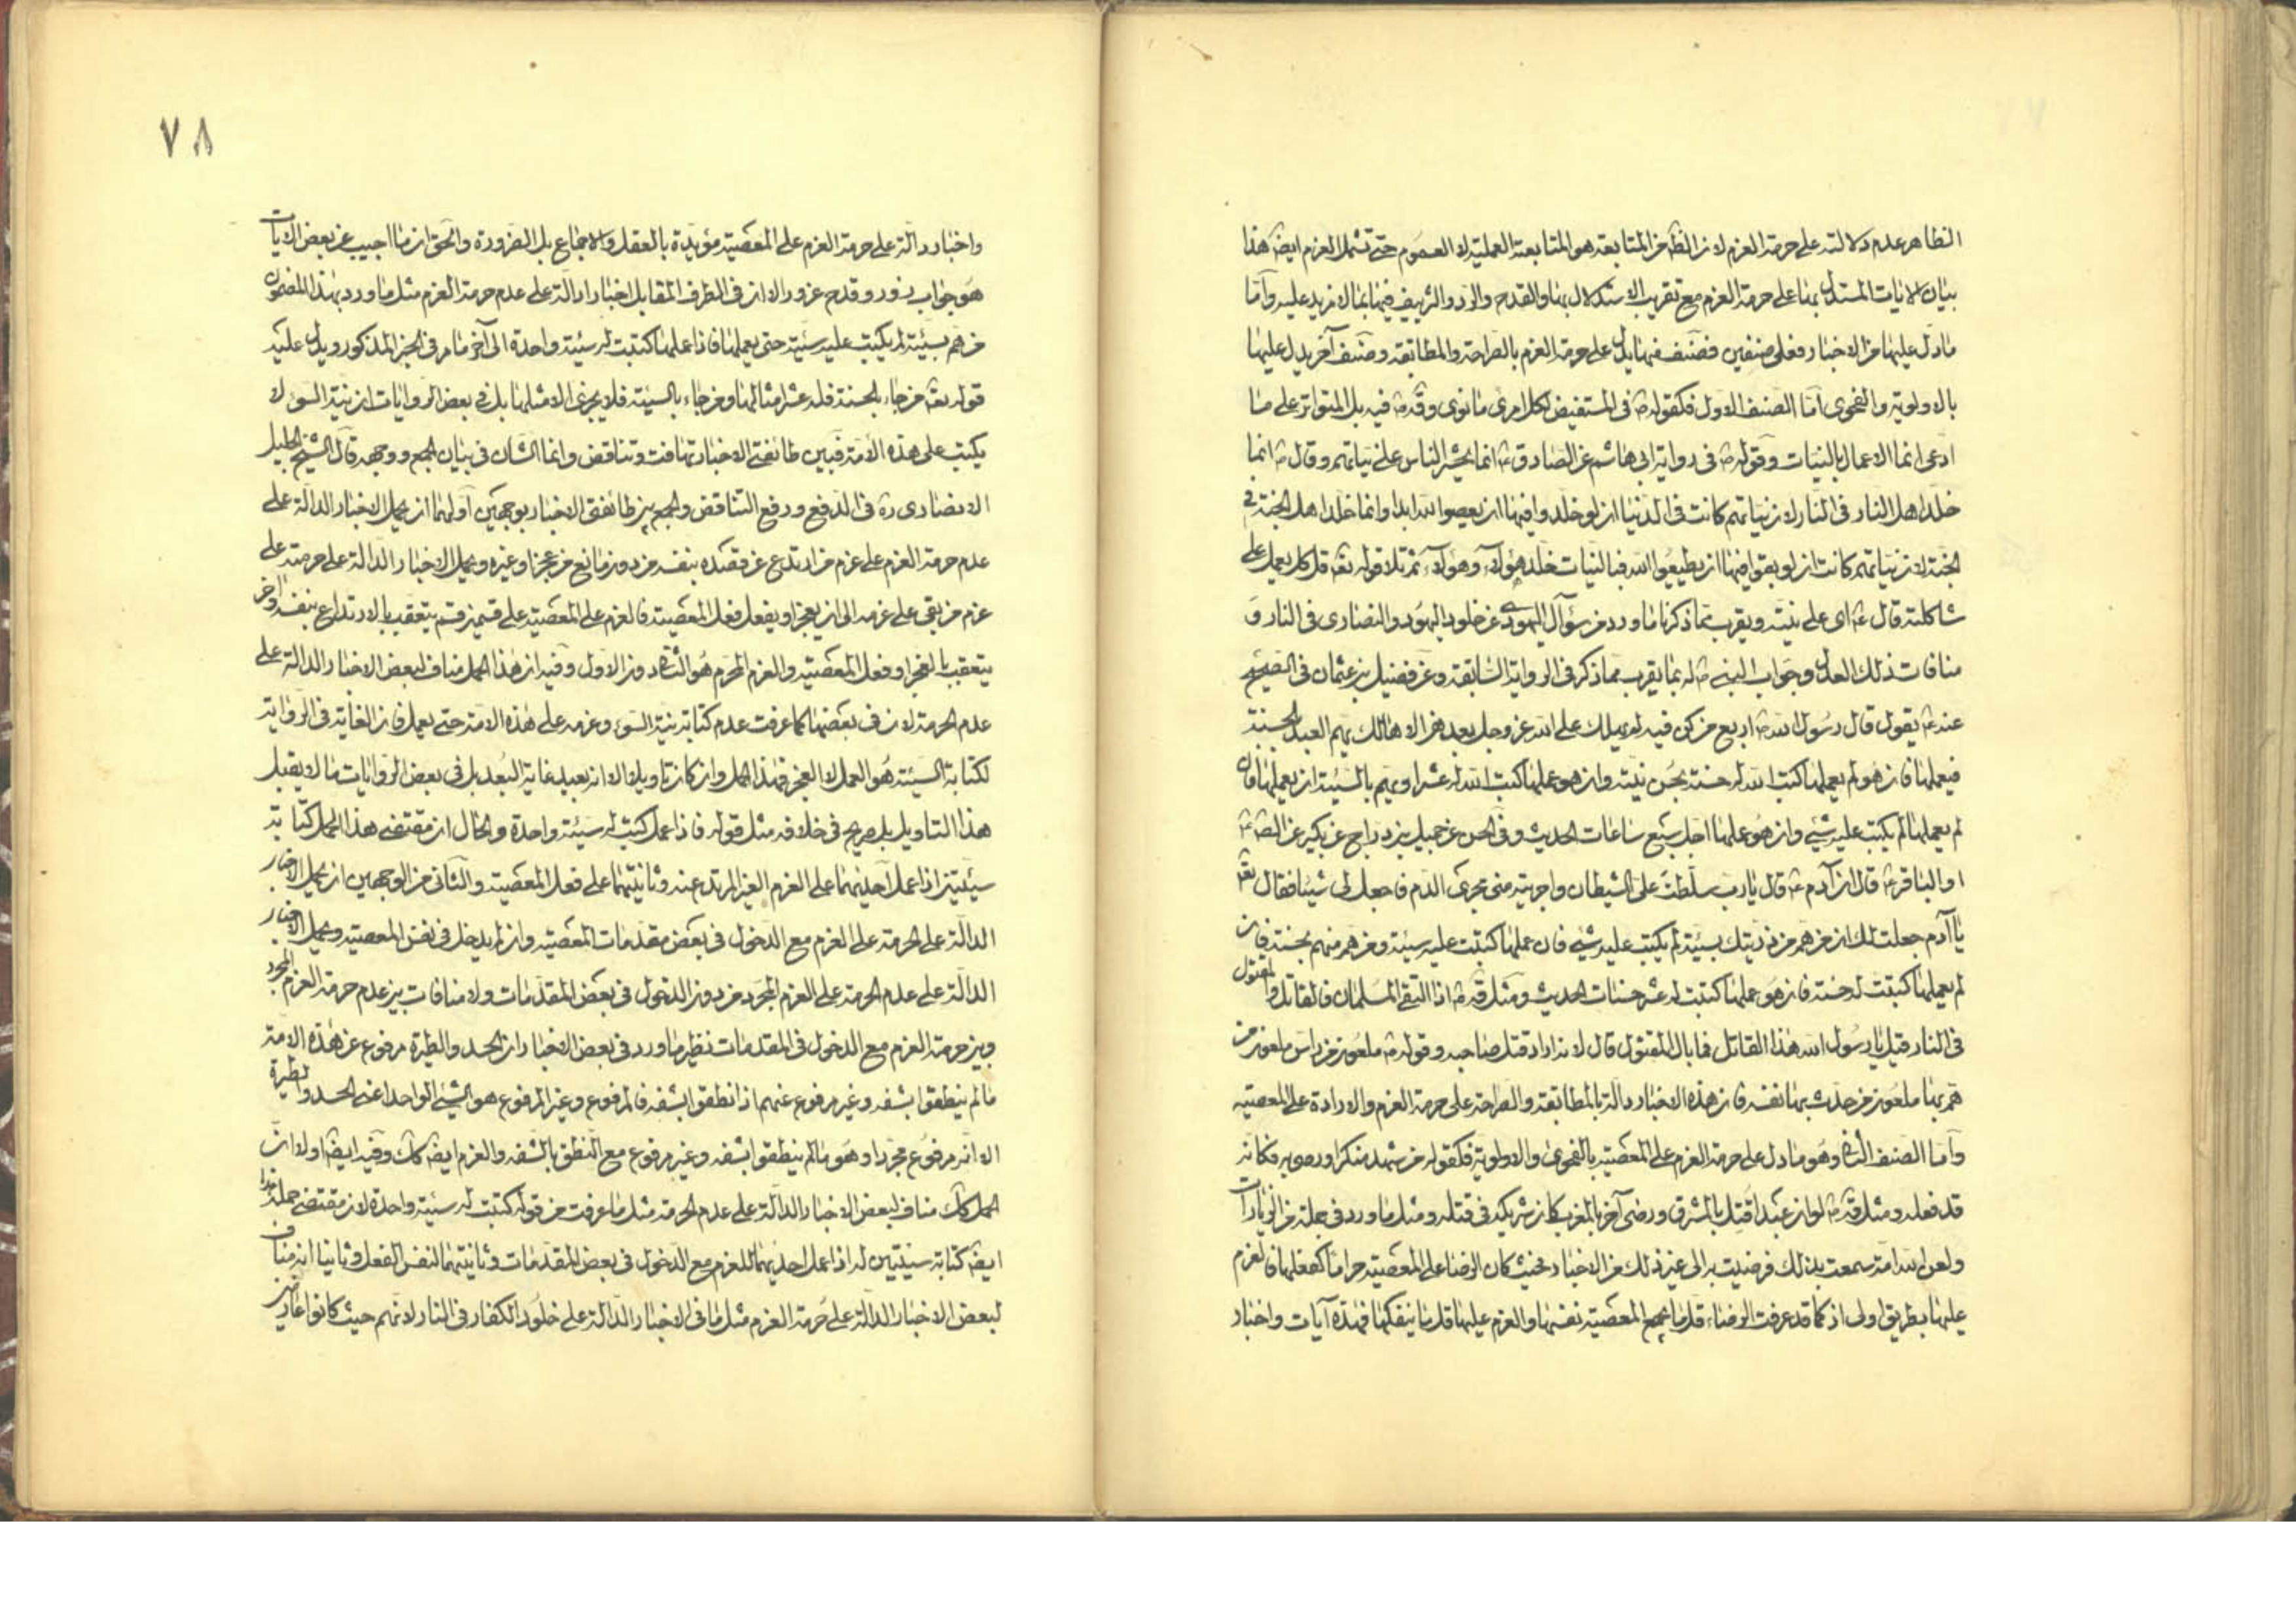 الظاهر عدم دلالته على حرمة العزم لان الظ من المتابعة هو المتابعة العملية لا العموم حتى تشمل العزم ايضه هذا
بيان الايات المستدل بها على حرمة العزم مع تقريب الاستدلال بها والقدح والرد والتزييف فيها بما لا مزيد عليه وامّا
ما دل عليها من الاخبار فعلى صنفين فصنف منها يدل على حرمة العزم بالصراحة والمطابقة وصنف آخر يدل عليها
بالاولوية والفحوى امّا الصنف الاول فكقوله ص في المستفيض لكل امرئ ما نوى وقوله ص فيه بل المتواتر على ما
ادعى انما الاعمال بالنيات وقوله ع في رواية ابى هاشم عن الصادق ع انما يحشر الناس على نياتهم وقال ع انما
خلد اهل النار في النار لان نياتهم كانت في الدنيا ان لو خلدوا فيها ان يعصوا الله ابدا وانما خلد اهل الجنة في
الجنة لان نياتهم كانت ان لو بقوا فيها ان يطيعوا الله فبالنيات خلد هؤلاء وهؤلاء ثم تلا قوله تعه قل كل يعمل على
شاكلته قال ع اى على نيته ويقرب مما ذكرنا ما ورد من سؤال اليهودى عن خلود اليهود والنصارى في النار و
منافات ذلك العدل وجواب النبى ص له بما يقرب مما ذكر في الرواية السابقة وعن فضيل بن عثمان في الصحيح
عنه ع يقول قال رسول الله ص اربع من كن فيه لم يهلك على الله عز وجل بعدهن الا هالك يهم العبد بالحسنة
فيعملها فان هو لم يعملها كتب الله له حسنة بحسن نيته وان هو عملها كتب الله له عشرا ويهم بالسيئة ان يعملها فان
لم يعملها لم يكتب عليه شئ وان هو عملها اجل سبع ساعات الحديث وفي الحسن عن جميل بن دراج عن بكير عن الص ع
او الباقر ع قال ان آدم ع قال يا رب سلطت على الشيطان واجريته منى مجرى الدم فاجعل لى شيئا فقال تعه
يا آدم جعلت لك ان من هم من ذريتك بسيئة لم يكتب عليه شئ فان عملها كتبت عليه سيئة ومن هم منهم بحسنة فان
لم يعملها كتبت له حسنة فان هو عملها كتبت له عشر حسنات الحديث ومثل قوله ص اذا التقى المسلمان فالقاتل والمقتول
في النار قيل يا رسول الله هذا القاتل فما بال المقتول قال لانه اراد قتل صاحبه وقوله ص ملعون من راس ملعون من
هم بها ملعون من حدث بها نفسه فان هذه الاخبار دالة بالمطابقة والصراحة على حرمة العزم والارادة على المعصية
وامّا الصنف الثانى وهو ما دل على حرمة العزم على المعصية بالفحوى والاولوية فكقوله من شهد منكرا ورضى به فكانه
قد فعله ومثل قوله ص لو ان عبدا قتل بالمشرق ورضى آخر بالمغرب كان شريكه في قتله ومثل ما ورد في جملة من الزيارات
ولعن الله امة سمعت بذلك فرضيت به الى غير ذلك من الاخبار فحيث كان الرضا على المعصية حراما كفعلها فالعزم
عليها بطريق اولى اذ كما قد عرفت الرضاء قلما يجامع المعصية نفسها والعزم عليها قلما ينفكها فهذه آيات واخبار
٧٨
واخبار دالة على حرمة العزم على المعصية مؤيدة بالعقل والاجماع بل الضرورة والحق ان ما اجيب عن بعض الايات
هو جواب وقدح الا ان في الطرف المقابل اخبارا دالة على عدم حرمة العزم مثل ما ورد بهذا المضمون
من هم بسيئة لم يكتب عليه سيئة حتى يعملها فاذا عملها كتبت له سيئة واحدة الى آخر ما مر في الخبر المذكور ويدل عليه
قوله تعه من جاء بالحسنة فله عشر امثالها ومن جاء بالسيئة فلا يجزى الا مثلها بل في بعض الروايات ان نية السوء لا
يكتب على هذه الامة فبين طائفتى الاخبار تهافت وتناقض وانما الشان في بيان الجمع ووجهه قال الشيخ الجليل
الانصارى ره في الدفع ورفع التناقض والجمع بين طائفتى الاخبار بوجهين اولهما ان يحمل الاخبار الدالة على
عدم حرمة العزم على عزم من ارتدع عن قصده بنفسه من دون مانع من عجز او غيره ويحمل الاخبار الدالة على حرمته على
عزم من بقى على عزمه الى ان يعجز او يفعل فعل المعصية فالعزم على المعصية على قسمين قسم يتعقب بالارتداع بنفسه وآخر
يتعقب بالعجز او فعل المعصية والعزم المحرم هو الثانى دون الاول وفيه ان هذا الحمل مناف لبعض الاخبار الدالة على
عدم الحرمة لان في بعضها كما عرفت عدم كتابة نية السوء وعزمه على هذه الامة حتى يعمل فان الغاية في الرواية
لكتابة السيئة هو العمل لا العجز فهذا الحمل وان كان تاويلا الا انه بعيد غاية البعد بل في بعض الروايات ما لا يقبل
هذا التاويل بل صريح في خلافه مثل قوله فاذا عمل كتبت له سيئة واحدة والحال ان مقتضى هذا الحمل كتابة
سيئتين اذا عمل احديهما على العزم الغير المرتدع عنه وثانيتهما على فعل المعصية والثانى من الوجهين ان يحمل الاخبار
الدالة على الحرمة على العزم مع الدخول في بعض مقدمات المعصية وان لم يدخل في نفس المعصية ويحمل الاخبار
الدالة على عدم الحرمة على العزم المجرد من دون الدخول في بعض المقدمات ولا منافات بين عدم حرمة العزم المجرد
وبين حرمة العزم مع الدخول في المقدمات نظير ما ورد في بعض الاخبار ان الحسد والطيرة مرفوع عن هذه الامة
ما لم ينطقوا بشفه وغير مرفوع عنهم اذا نطقوا بشفه فالمرفوع وغير المرفوع هو الشئ الواحد اعنى الحسد والطيرة
الا انه مرفوع مجردا وهو ما لم ينطقوا بشفه وغير مرفوع مع النطق بالشفه والعزم ايضه كك وفيه ايضه اولا ان
الحمل كك مناف لبعض الاخبار الدالة على عدم الحرمة مثل ما عرفت من قوله كتبت له سيئة واحدة لان مقتضى حمله هذا
ايضه كتابة سيئتين له اذا عمل احديهما للعزم مع الدخول في بعض المقدمات وثانيتهما لنفس الفعل وثانيا انه مناف
لبعض الاخبار الدالة على حرمة العزم مثل ما في الاخبار الدالة على خلود الكفار في النار لانهم حيث كانوا عازمين